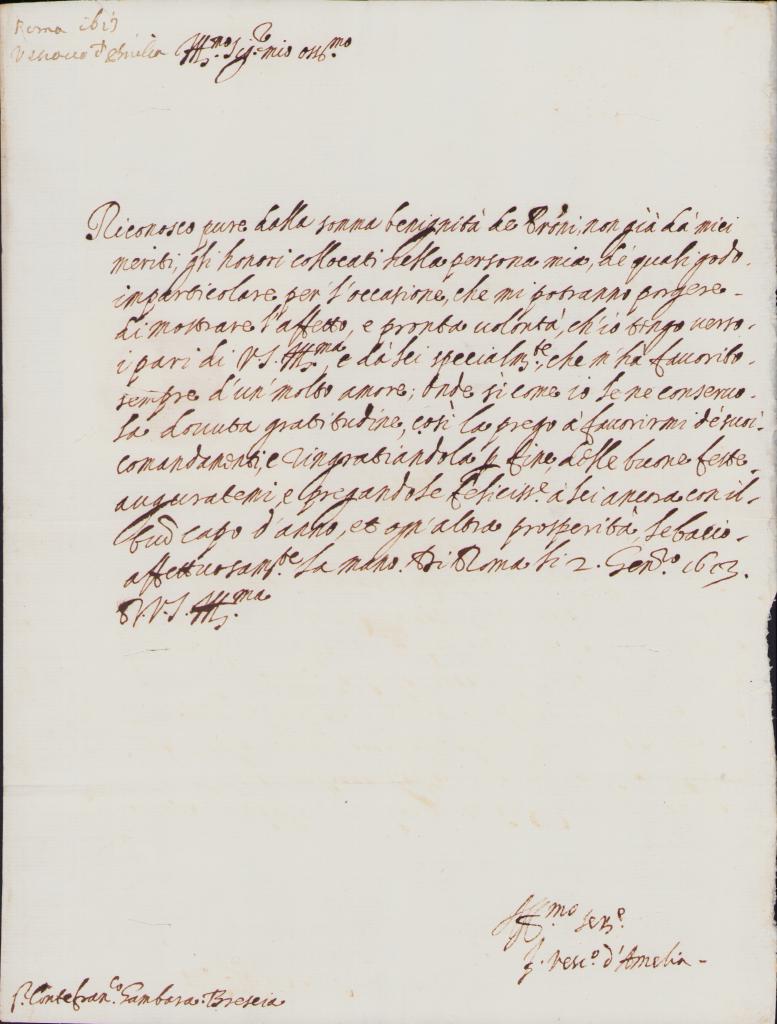 Roma 1613
Vescovo d'Amelia
Ill.mo Sig.re mio oss.mo
Riconosco pure dalla somma benignità de Prōni, non già dà miei
meriti, gli honori collocati nella persona mia, de' quali godo
imparticolare per l'occasione, che mi potranno porgere
di mostrare l'affetto, e pronta volontà, ch'io tengo verso
i pari di V.S. Ill.ma, e dà lei specialm.te, che m'ha favorito
sempre d'un molto amore; onde si come io le ne conservo
la dovuta gratitudine, così la prego à favorirmi de suoi
comandamenti, e ringratiandola p fine, delle buone feste
auguratemi, e pregandole feliciss.e à lei ancora con il
buō capo d'anno, et ogn'altra prosperità, le bacio
affettuosam.te la mano. Di Roma li 2. Gen.o 1613.
D.V.S. Ill.ma
Aff.mo ser.e
Il Vesc.o d'Amelia
S. Conte fran.co Gambara. Brescia